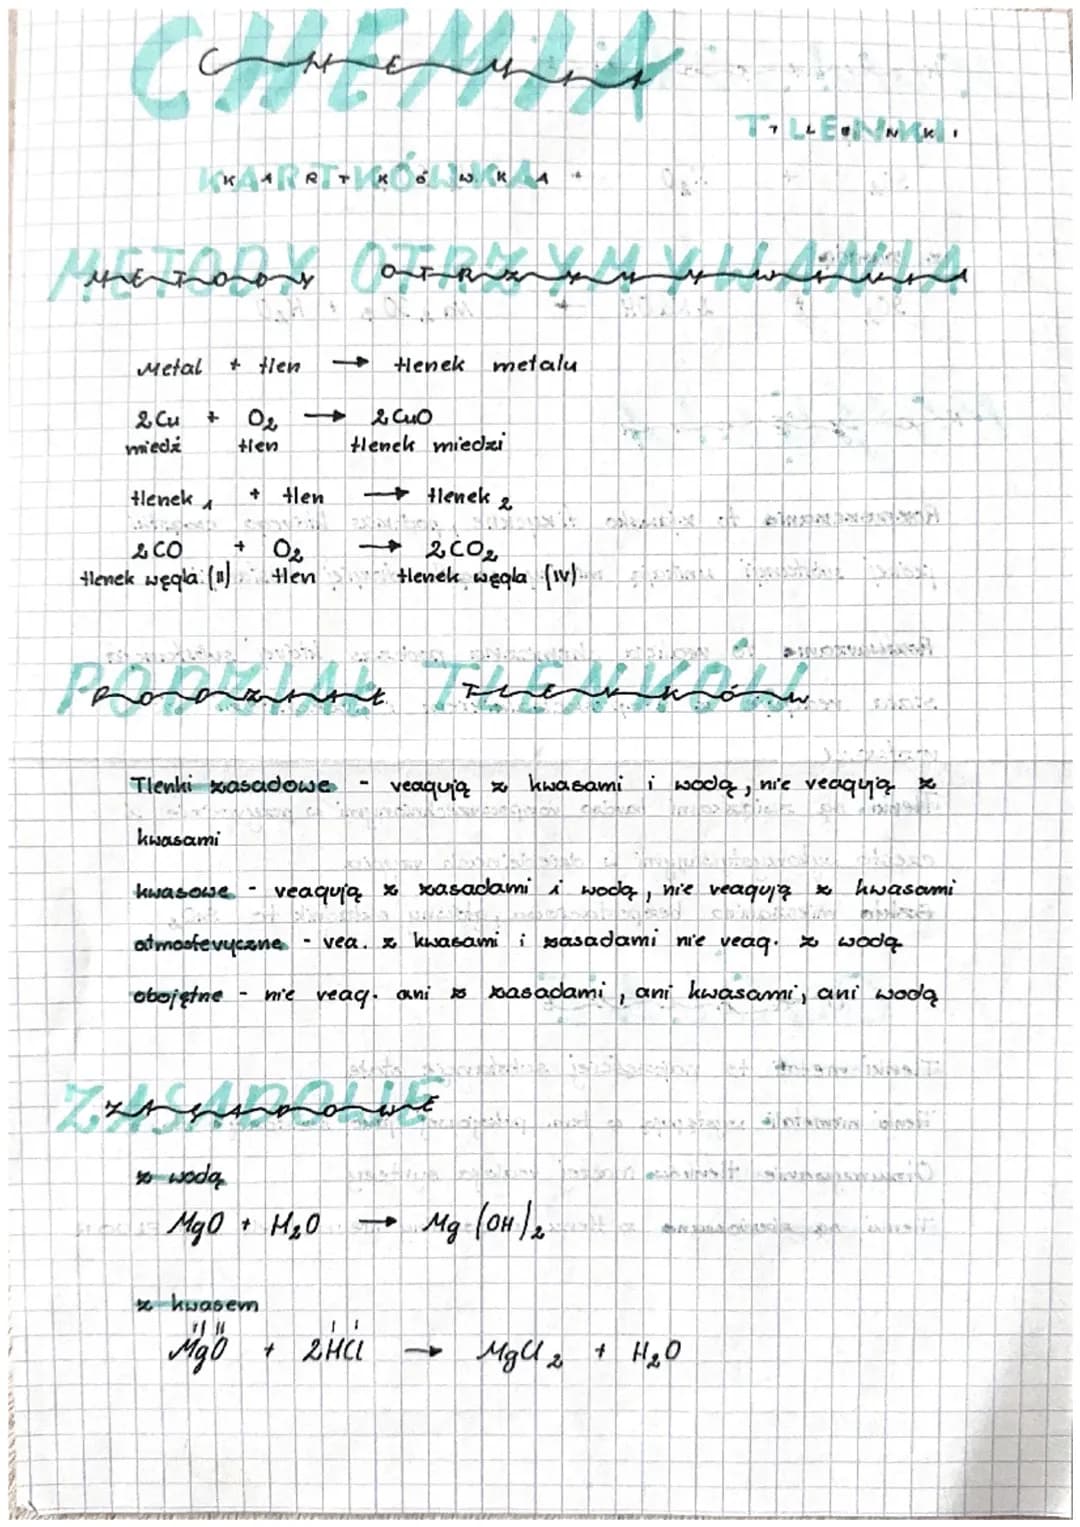 CHEMIA
TLENKI
KARTKÓWKA
METODY OTRZYMYWANIA
Metal + tlen → tlenek metalu
2Cu + O₂ → 2CuO
miedź tlen tlenek miedzi
tlenek 1 + tlen → tlenek 2
2CO + O₂ → 2CO₂
tlenek węgla (II) tlen tlenek węgla (IV)
PODZIAŁ TLENKÓW
Tlenki zasadowe - reagują z kwasami i wodą, nie reagują z
kwasami
kwasowe - reagują z zasadami i wodą, nie reagują z kwasami
atmosferyczne - rea. z kwasami i zasadami nie reag. z wodą
obojętne - nie reag. ani z zasadami, ani kwasami, ani wodą
ZASADOWE
z wodą
MgO + H₂O → Mg(OH)₂
z kwasem
II II I I
MgO + 2HCl → MgCl₂ + H₂O